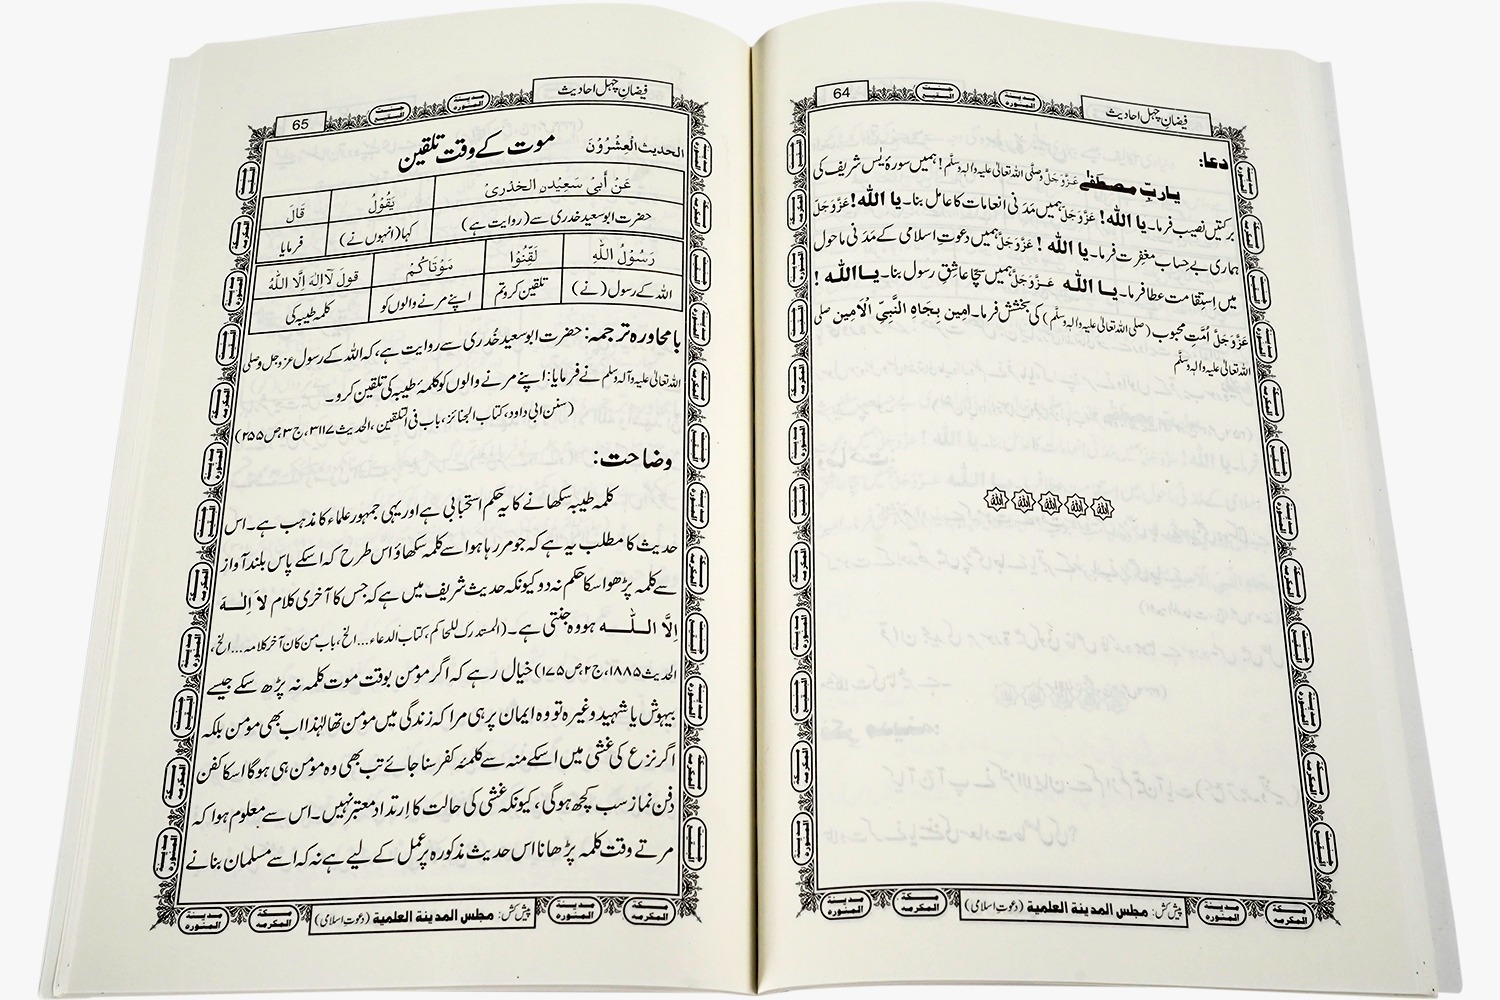 64
فیضانِ چہل احادیث
دعا:
یاربِّ مصطفےٰ عَزَّوَجَلَّ و صلَّی اللہ تعالیٰ علیہ واٰلہٖ وسلَّم! ہمیں سورۂ یٰس شریف کی
برکتیں نصیب فرما۔ یا اللہ! عَزَّوَجَلَّ ہمیں مَدَنی انعامات کا عامل بنا۔ یا اللہ! عَزَّوَجَلَّ
ہماری بے حساب مغفرت فرما۔ یا اللہ ! عَزَّوَجَلَّ ہمیں دعوتِ اسلامی کے مَدَنی ماحول
میں اِستِقامت عطا فرما۔ یا اللہ عَزَّوَجَلَّ ہمیں سچّا عاشقِ رسول بنا۔ یا اللہ !
عَزَّوَجَلَّ اُمّتِ محبوب (صلی اللہ تعالیٰ علیہ والہ وسلَّم) کی بخشش فرما۔ امِین بِجَاہِ النَّبِیِّ الْاَمِین صلی
اللہ تعالیٰ علیہ والہ وسلَّم
اللہ اللہ اللہ اللہ اللہ
پیش کش: مجلس المدینۃ العلمیۃ (دعوتِ اسلامی)
65
فیضانِ چہل احادیث
الحدیث الْعِشْرُوْنَ
موت کے وقت تلقین
عَنْ أَبِیْ سَعِیْدِنِ الخدریْ
یَقُوْلُ
قَالَ
حضرت ابوسعید خدری سے (روایت ہے)
کہا (انہوں نے)
فرمایا
رَسُوْلُ اللّٰہِ
لَقِّنُوْا
مَوْتَاکُمْ
قولَ لَآاِلٰہَ اِلَّا اللّٰہُ
اللہ کے رسول (نے)
تلقین کرو تم
اپنے مرنے والوں کو
کلمہ طیبہ کی
بامحاورہ ترجمہ: حضرت ابوسعید خُدری سے روایت ہے، کہ اللہ کے رسول عزوجل وصلی
اللہ تعالیٰ علیہ وآلہ وسلم نے فرمایا: اپنے مرنے والوں کو کلمۂ طیبہ کی تلقین کرو۔
(سنن ابی داود، کتاب الجنائز، باب فی التلقین، الحدیث ۳۱۱۷، ج۳، ص۲۵۵)
وضاحت:
کلمہ طیبہ سکھانے کا یہ حکم استحبابی ہے اور یہی جمہور علماء کا مذہب ہے۔ اس
حدیث کا مطلب یہ ہے کہ جو مر رہا ہوا سے کلمہ سکھاؤ اس طرح کہ اسکے پاس بلند آواز
سے کلمہ پڑھو اسکا حکم نہ دو کیونکہ حدیث شریف میں ہے کہ جس کا آخری کلام لاَ اِلٰـہَ
اِلَّا اللّٰہ ہو وہ جنتی ہے۔ (المستدرک للحاکم، کتاب الدعاء...الخ، باب من کان آخر کلامہ...الخ،
الحدیث ۱۸۸۵، ج۲، ص۱۷۵) خیال رہے کہ اگر مؤمن بوقت موت کلمہ نہ پڑھ سکے جیسے
بیہوش یا شہید وغیرہ تو وہ ایمان پر ہی مرا کہ زندگی میں مؤمن تھا لہٰذا اب بھی مؤمن بلکہ
اگر نزع کی غشی میں اسکے منہ سے کلمئہ کفر سنا جائے تب بھی وہ مؤمن ہی ہوگا اسکا کفن
دفن نماز سب کچھ ہوگی، کیونکہ غشی کی حالت کا اِرتداد معتبر نہیں۔ اس سے معلوم ہوا کہ
مرتے وقت کلمہ پڑھانا اس حدیث مذکورہ پر عمل کے لیے ہے نہ کہ اسے مسلمان بنانے
پیش کش: مجلس المدینۃ العلمیۃ (دعوتِ اسلامی)